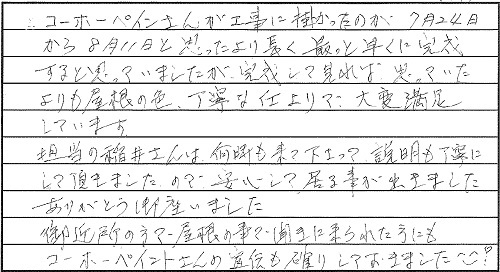 コーホーペイントさんが工事に掛かったのが 7月24日
から8月11日と思ったより長く 最っと早くに完成
すると思っていましたが、完成して見れば 思っていた
よりも屋根の色、丁寧な仕上りで 大変満足
しています
担当の稲井さんは 何時も来て下さって 説明も丁寧に
して頂きましたので 安心して居る事が出来ました
ありがとう御座いました
御近所の方で 屋根の事で聞きに来られた方にも
コーホーペイントさんの宣伝も確りしておきました